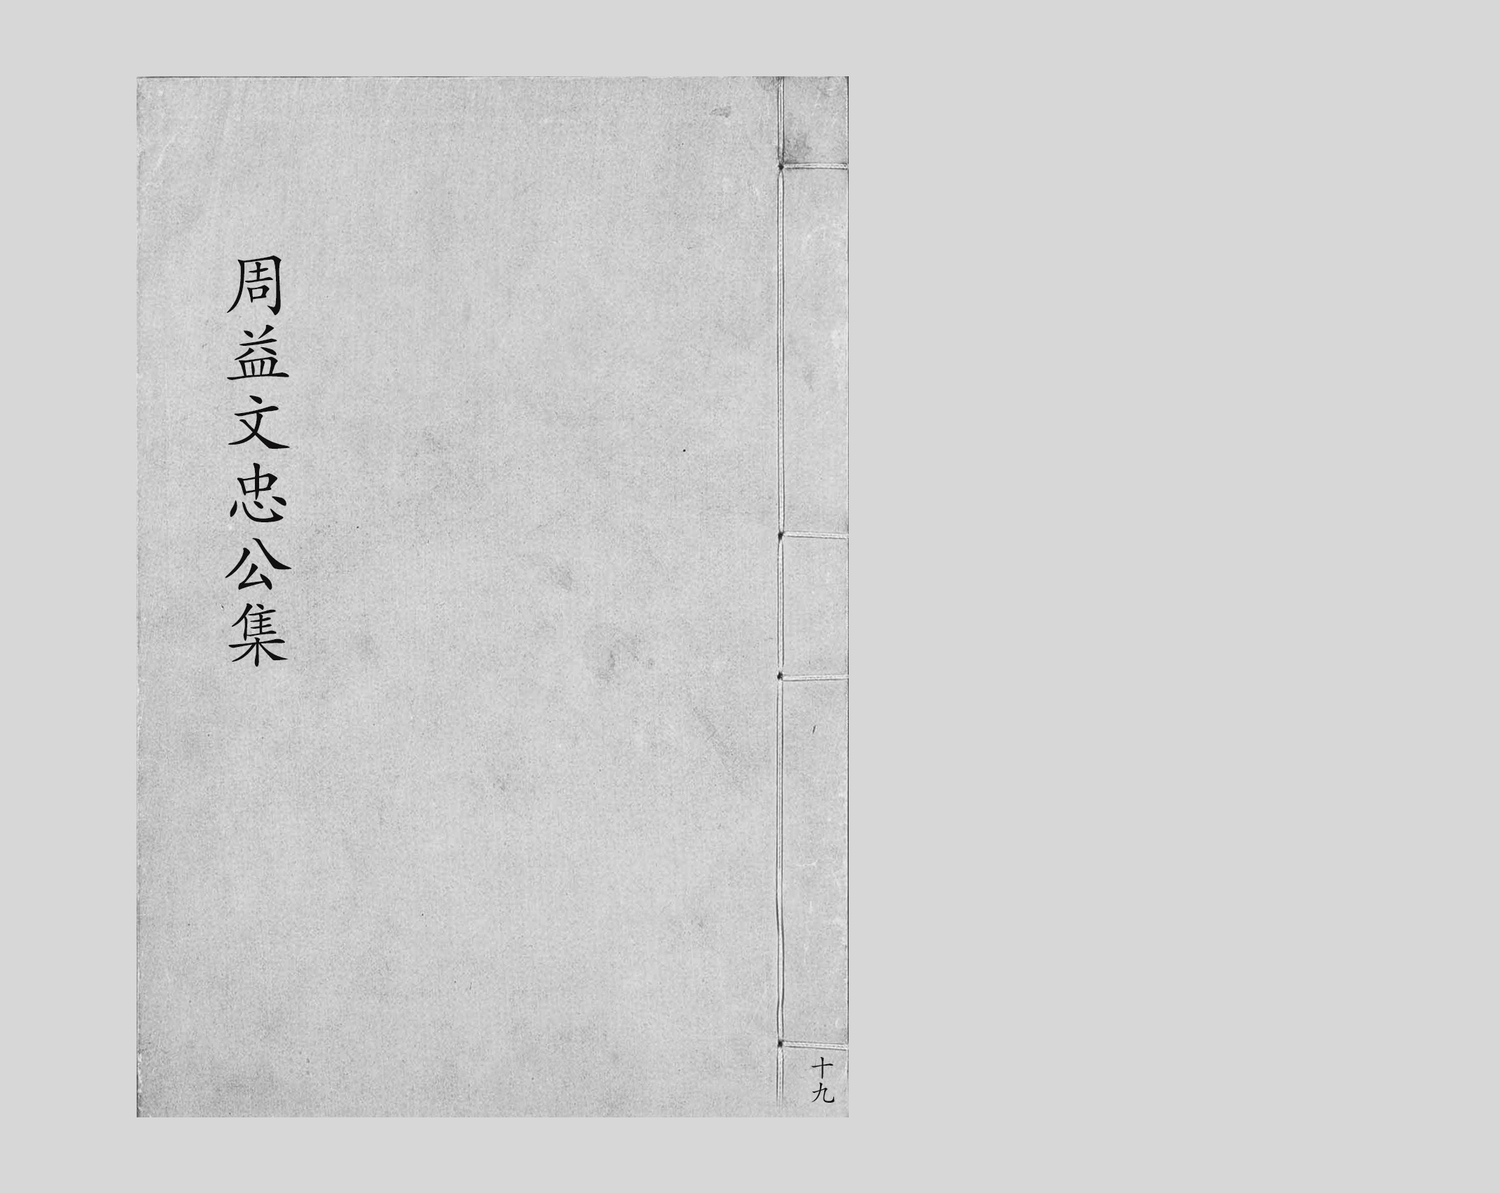 周益文忠公集
十九